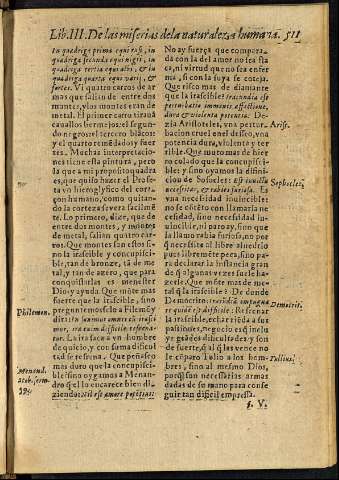 Lib. III. De las miserias de la naturaleza humana. 511
in quadriga prima equi rufi, in
quadriga secunda equi nigri, in
quadriga tertia equi albi, &
in quadriga quarta equi varij, &
fortes. Vi quatro carros de ar
mas que salian de entre dos
montes, y los montes eran de
metal. El primer carro tirauã
cauallos bermejos: el segun-
do negros: el tercero blãcos:
y el quarto remẽdados y fuer
tes. Muchas interpretacio-
nes tiene esta pintura, pero
la que a mi proposito quadra
es, que quiso hazer el Profe-
ta vn hieroglyfico del cora-
çon humano, como quitan-
do la corteza se vera facilmẽ
te. Lo primero, dize, que de
entre dos montes, y montes
de metal, salian quatro car-
ros. Que montes son estos si-
no la irascible y concupisci-
ble, tan de bronze, tã de me-
tal, y tan de azero, que para
conquistarlas es menester
Dios y ayuda. Que mas mas
fuerte que la irascible, sino
preguntemoselo a Filemõ y
dira:
tor. La ira faca a vn hombre
de quicio, y con suma dificul
tad se refrena. Que peñasco
mas duro que la concupisci-
ble sino oygamos a Menan-
dro q̃ el lo encarece bien di-
ziendo:
Philemon.
Menand.
No ay fuerça que compera-
da con la del amor no sea fla
ca, ni virtud que no sea enfer
ma, si con la suya se coteja.
Que risco mas de diamante
que la irascible:
De-
zia Aristoteles, vna pertur-
bacion cruel en el desseo, vna
potencia dura, violente y ter
rible. Que muro mas de hier
ro colado que la concupisci-
ble; y sino oyamos la difini-
cion de Sofocles:
Es
vna necesidad inuincible:
no se côtẽto con llamarla ne
cesidad, sino necessidad in-
uincible, ni paro ay, sino que
la llamo rabia furiosa, no por
q̃ necessite al libre aluedrio
pues libremente peca, sino pa
ra declarar la instancia gran
de q̃ algunas vezes suele ha-
zerle. Que mõte mas de me-
tal que la irascible? De donde
Democrito:
Refrenar
la irascible, echar riẽda a sus
passiones, negocio es q̃ inclu
ye grãdes dificultades, y son
de suerte, q̃ al q̃ las vence no
le cõparo Tulio a los hom-
bres, sino al mesmo Dios,
porq̃ son necessarias arma-
das de su mano para conse
guir tan dificil empressa.
Arist.
Sophocles.
Democrit.
Tullius.
§. V.